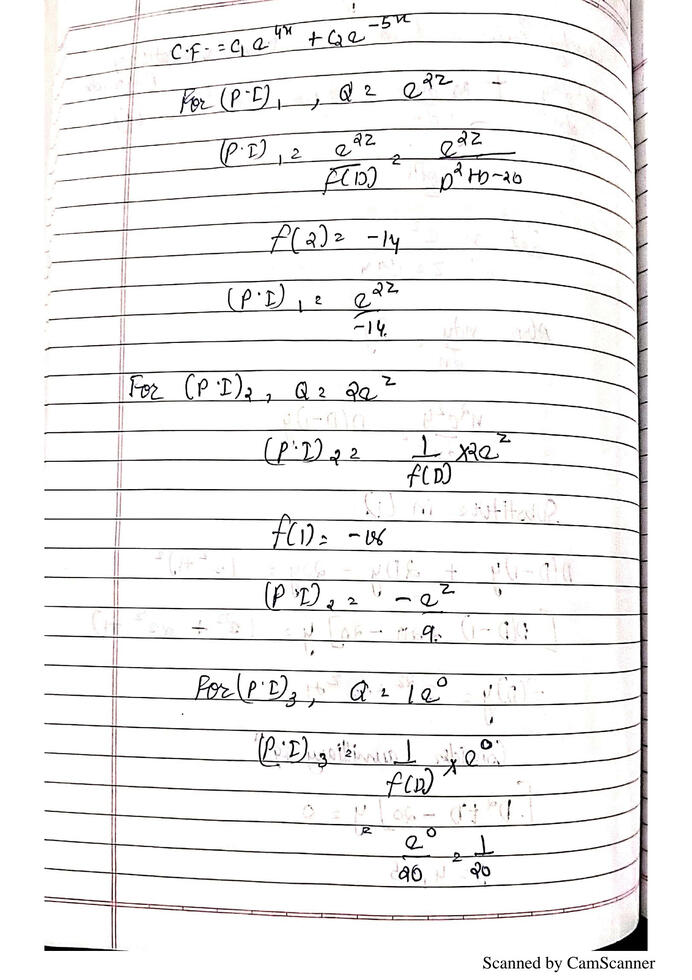 C.F. = C₁ e^{4x} + C₂ e^{-5x}
For (P.I)₁, Q = e^{2z}
(P.I)₁ = e^{2z}/f(D) = e^{2z}/(D²+D-20)
f(2) = -14
(P.I)₁ = e^{2z}/-14
For (P.I)₂, Q = 2e^z
(P.I)₂ = 1/f(D) × 2e^z
f(1) = -18
(P.I)₂ = -e^z/9
For (P.I)₃, Q = 1e⁰
(P.I)₃ = 1/f(D) × e⁰
e⁰/20 = 1/20
Scanned by CamScanner